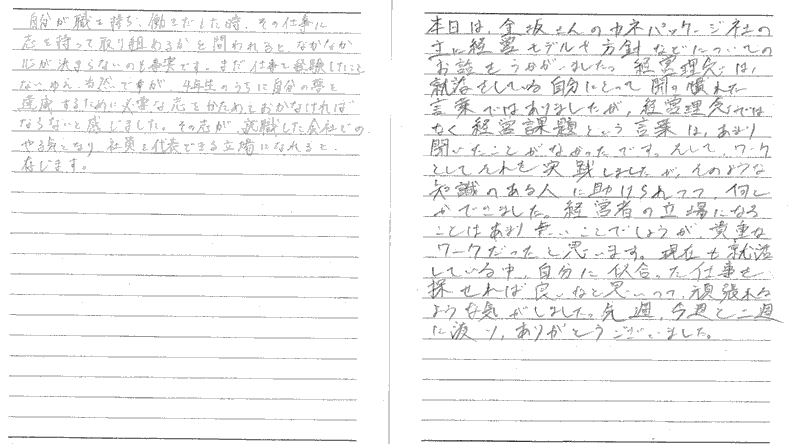 自分が職を持ち、働きだした時、その仕事に
志を持って取り組めるかと問われると、なかなか
心が決まらないのも事実です。まだ仕事を経験したこと
ないゆえ、当然ですが、4年生のうちに自分の夢を
達成するために必要な志をかためておかなければ
ならないと感じました。その志が、就職した会社での
やる気となり、社員を代表できる立場になれると
存じます。
本日は、金坂さんのカネパッケージ社の
主に経営モデルや方針などについての
お話をうかがいました。経営理念は、
就活をしている自分にとって聞き慣れた
言葉ではありましたが、経営理念では
なく経営課題という言葉は、あまり
聞いたことがなかったです。そして、ワーク
としてそれを実践しましたが、そのような
知識のある人に助けられつつ、何と
かできました。経営者の立場になる
ことはあまり無いことでしょうが、貴重な
ワークだったと思います。現在も就活
している中、自分に似合った仕事を
探せれば良いなと思いつつ、頑張れる
ような気がしました。先週、今週と二週
に渡り、ありがとうございました。